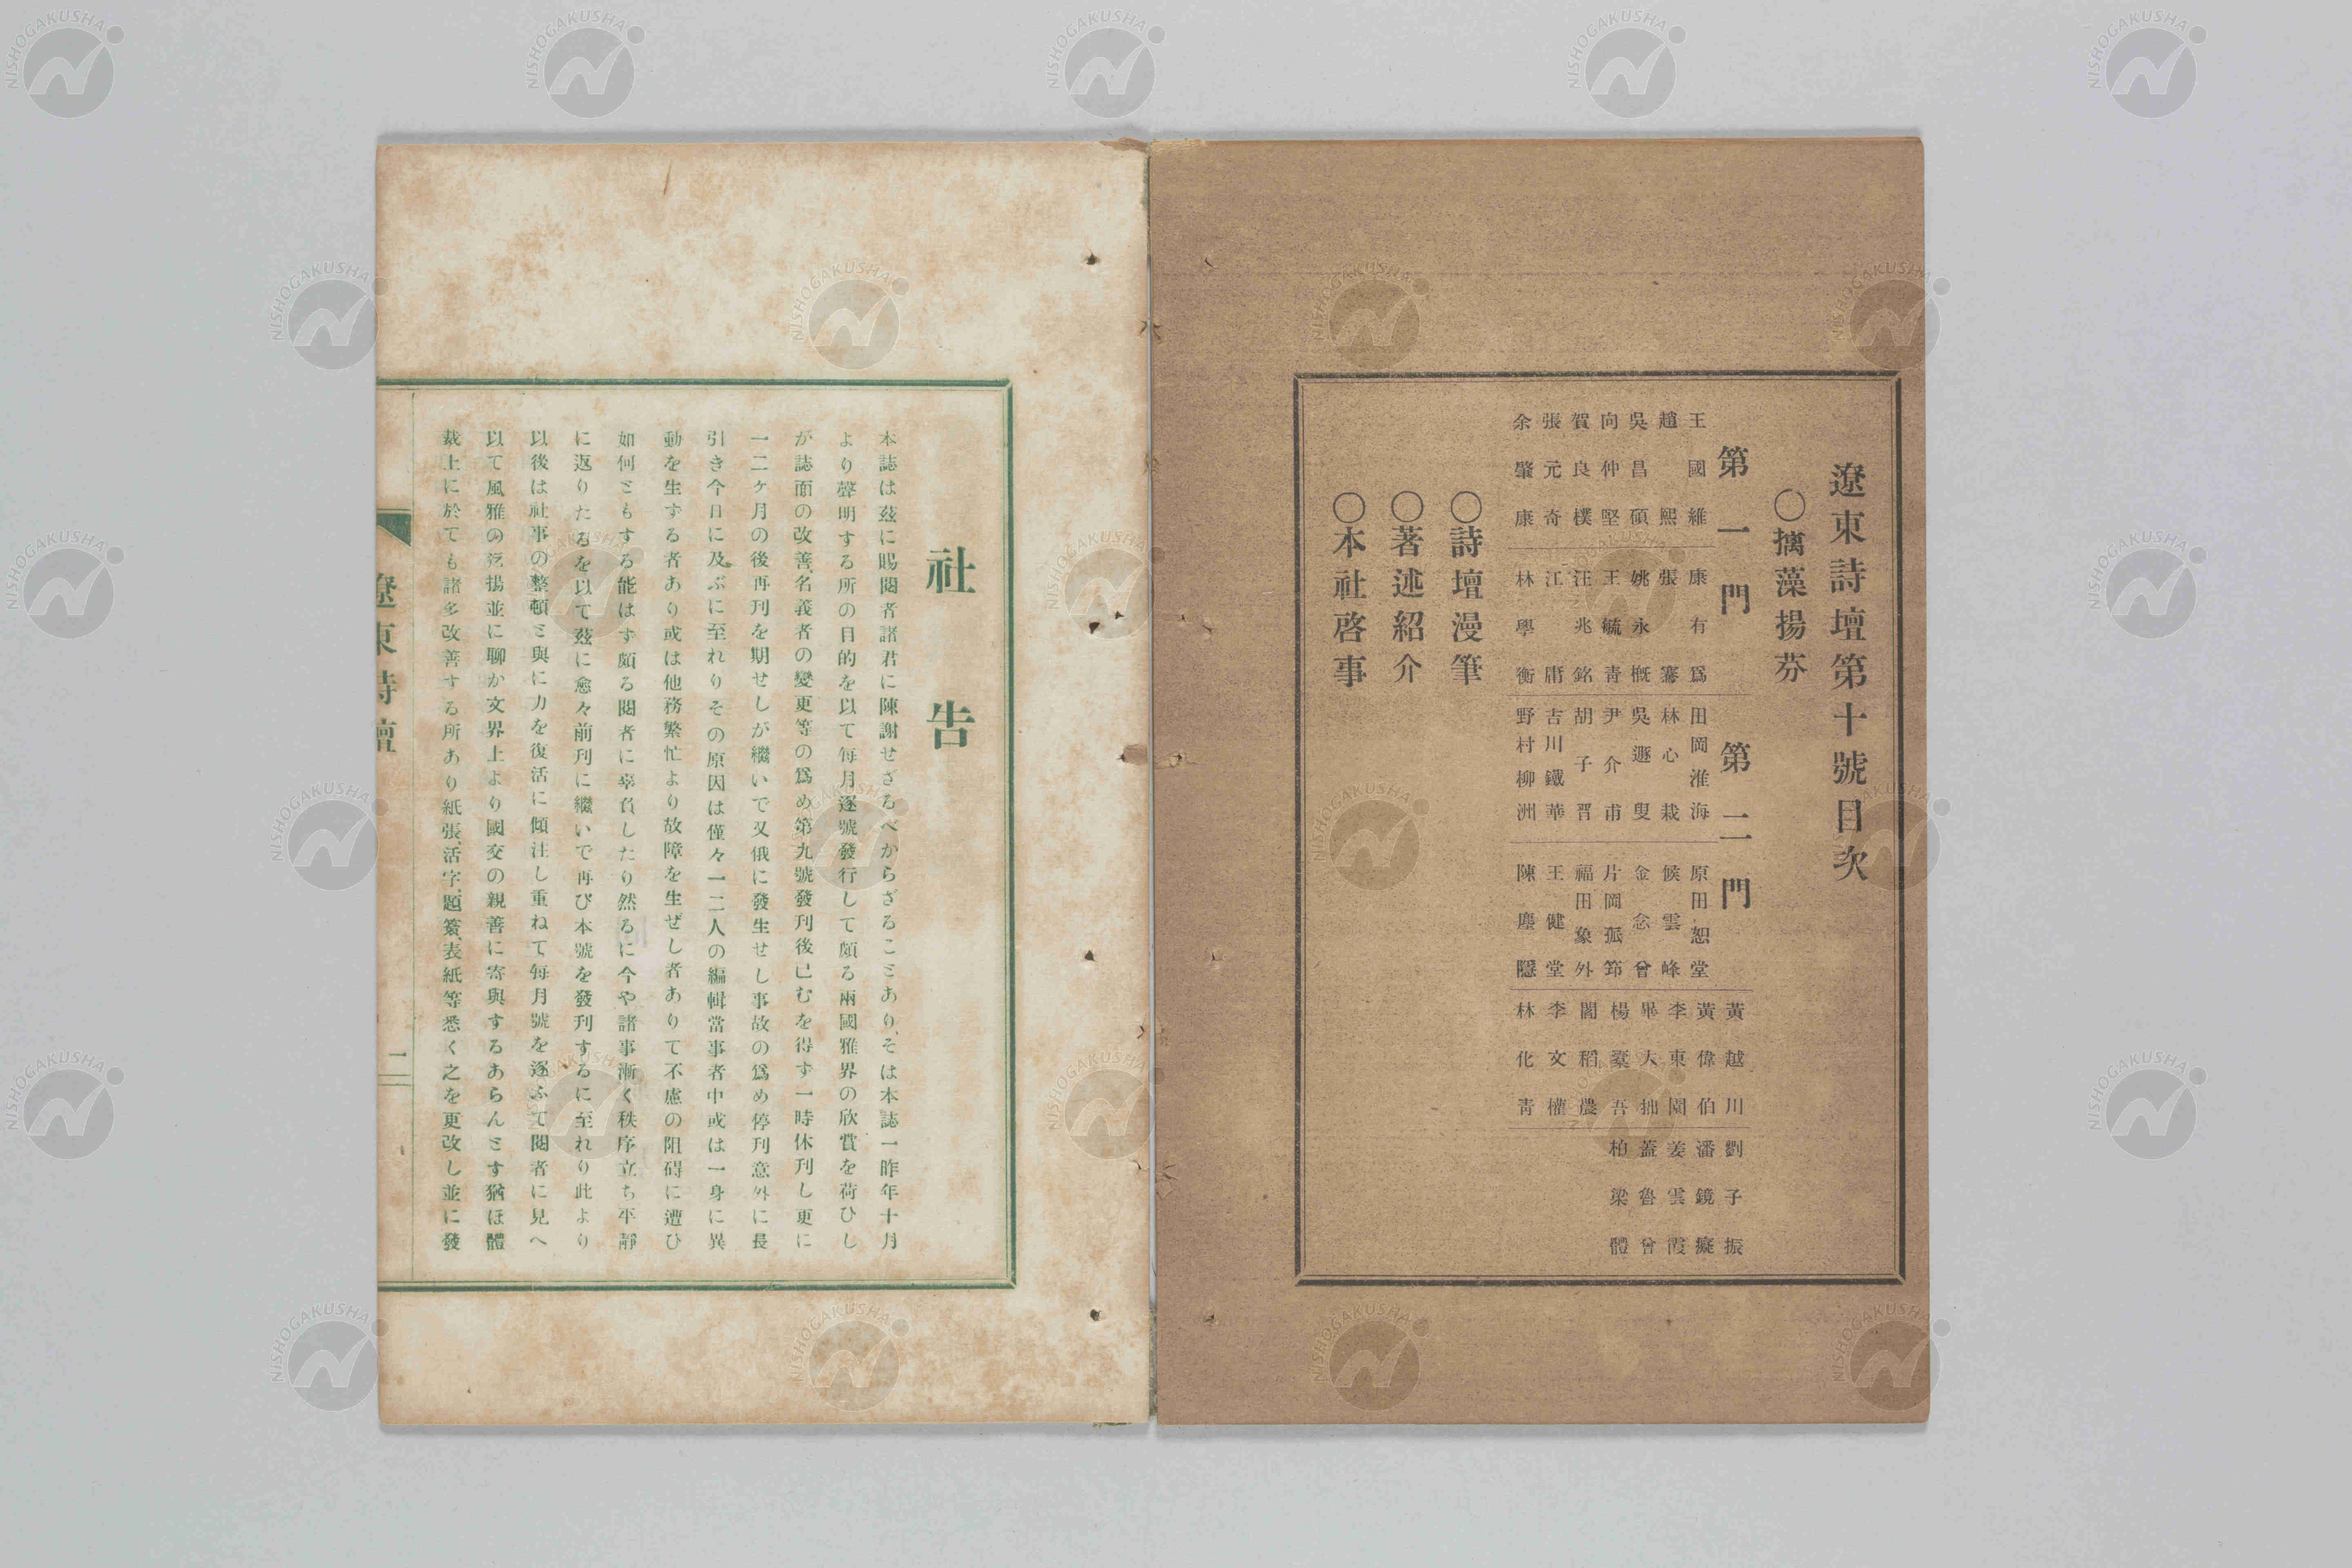 遼東詩壇第十號目次
〇摛藻揚芬
第一門
王國維
趙熙
吳昌碩
向仲堅
賀良樸
張元奇
余肇康
康有爲
張謇
姚永槪
王毓靑
汪兆銘
江庸
林學衡
第二門
田岡淮海
林心栽
吳遯叟
尹介甫
胡子晋
吉川鐵華
野村柳洲
原田恕堂
候雲峰
金念曾
片岡孤筇
福田象外
王健堂
陳塵隱
黃越川
黃偉伯
李東園
畢大拙
楊槖吾
閻稻農
李文權
林化靑
劉子振
潘鏡癡
姜雲霞
蓋魯曾
柏梁體
〇詩壇漫筆
〇著述紹介
〇本社啓事
社告
本誌は茲に賜閱者諸君に陳謝せざるべからざることあり、そは本誌一昨年十月
より聲明する所の目的を以て每月逐號發行して頗る兩國雅界の欣賞を荷ひし
が誌面の改善、名義者の變更等の爲め第九號發刊後已むを得す一時休刊し更に
一二ヶ月の後再刊を期せしが繼いで又俄に發生せし事故の爲め停刊意外に長
引き今日に及ぶに至れりその原因は僅々一二人の編輯當事者中或は一身に異
動を生する者あり或は他務繁忙より故障を生ぜし者ありて不慮の阻碍に遭ひ
如何ともする能はす頗る閱者に辜負したり然るに今や諸事漸く秩序立ち平靜
に返りたるを以て茲に愈々前刊に繼いで再び本號を發刊するに至れり此より
以後は社事の整頓と與に力を復活に傾注し重ねて每月號を逐ふて閱者に見へ
以て風雅の發揚並に聊か文界上より國交の親善に寄與するあらんとす猶ほ體
裁上に於ても諸多改善する所あり紙張、活字、題簽、表紙等悉く之を更改し並に發
遼東詩壇
二
NISHOGAKUSHA